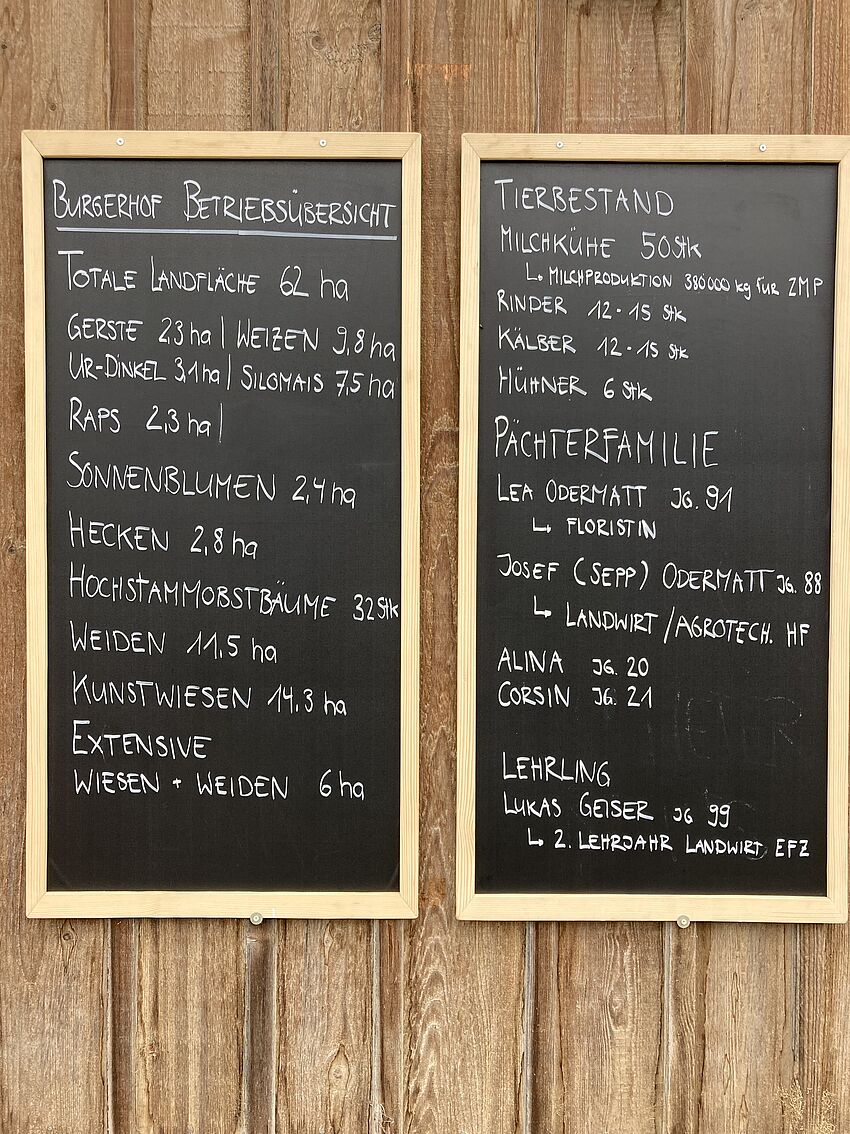 BURGERHOF BETRIEBSÜBERSICHT
TOTALE LANDFLÄCHE 62 ha
GERSTE 2,3 ha | WEIZEN 9,8 ha
UR-DINKEL 3,1 ha | SILOMAIS 7,5 ha
RAPS 2,3 ha |
SONNENBLUMEN 2,4 ha
HECKEN 2,8 ha
HOCHSTAMMOBSTBÄUME 32 Stk
WEIDEN 11,5 ha
KUNSTWIESEN 14,3 ha
EXTENSIVE
WIESEN + WEIDEN 6 ha
TIERBESTAND
MILCHKÜHE 50 Stk
↳ MILCHPRODUKTION 380'000 kg für ZMP
RINDER 12-15 Stk
KÄLBER 12-15 Stk
HÜHNER 6 Stk
PÄCHTERFAMILIE
LEA ODERMATT JG. 91
↳ FLORISTIN
JOSEF (SEPP) ODERMATT JG. 88
↳ LANDWIRT / AGROTECH. HF
ALINA JG. 20
CORSIN JG. 21
LEHRLING
LUKAS GEISER JG 99
↳ 2. LEHRJAHR LANDWIRT EFZ